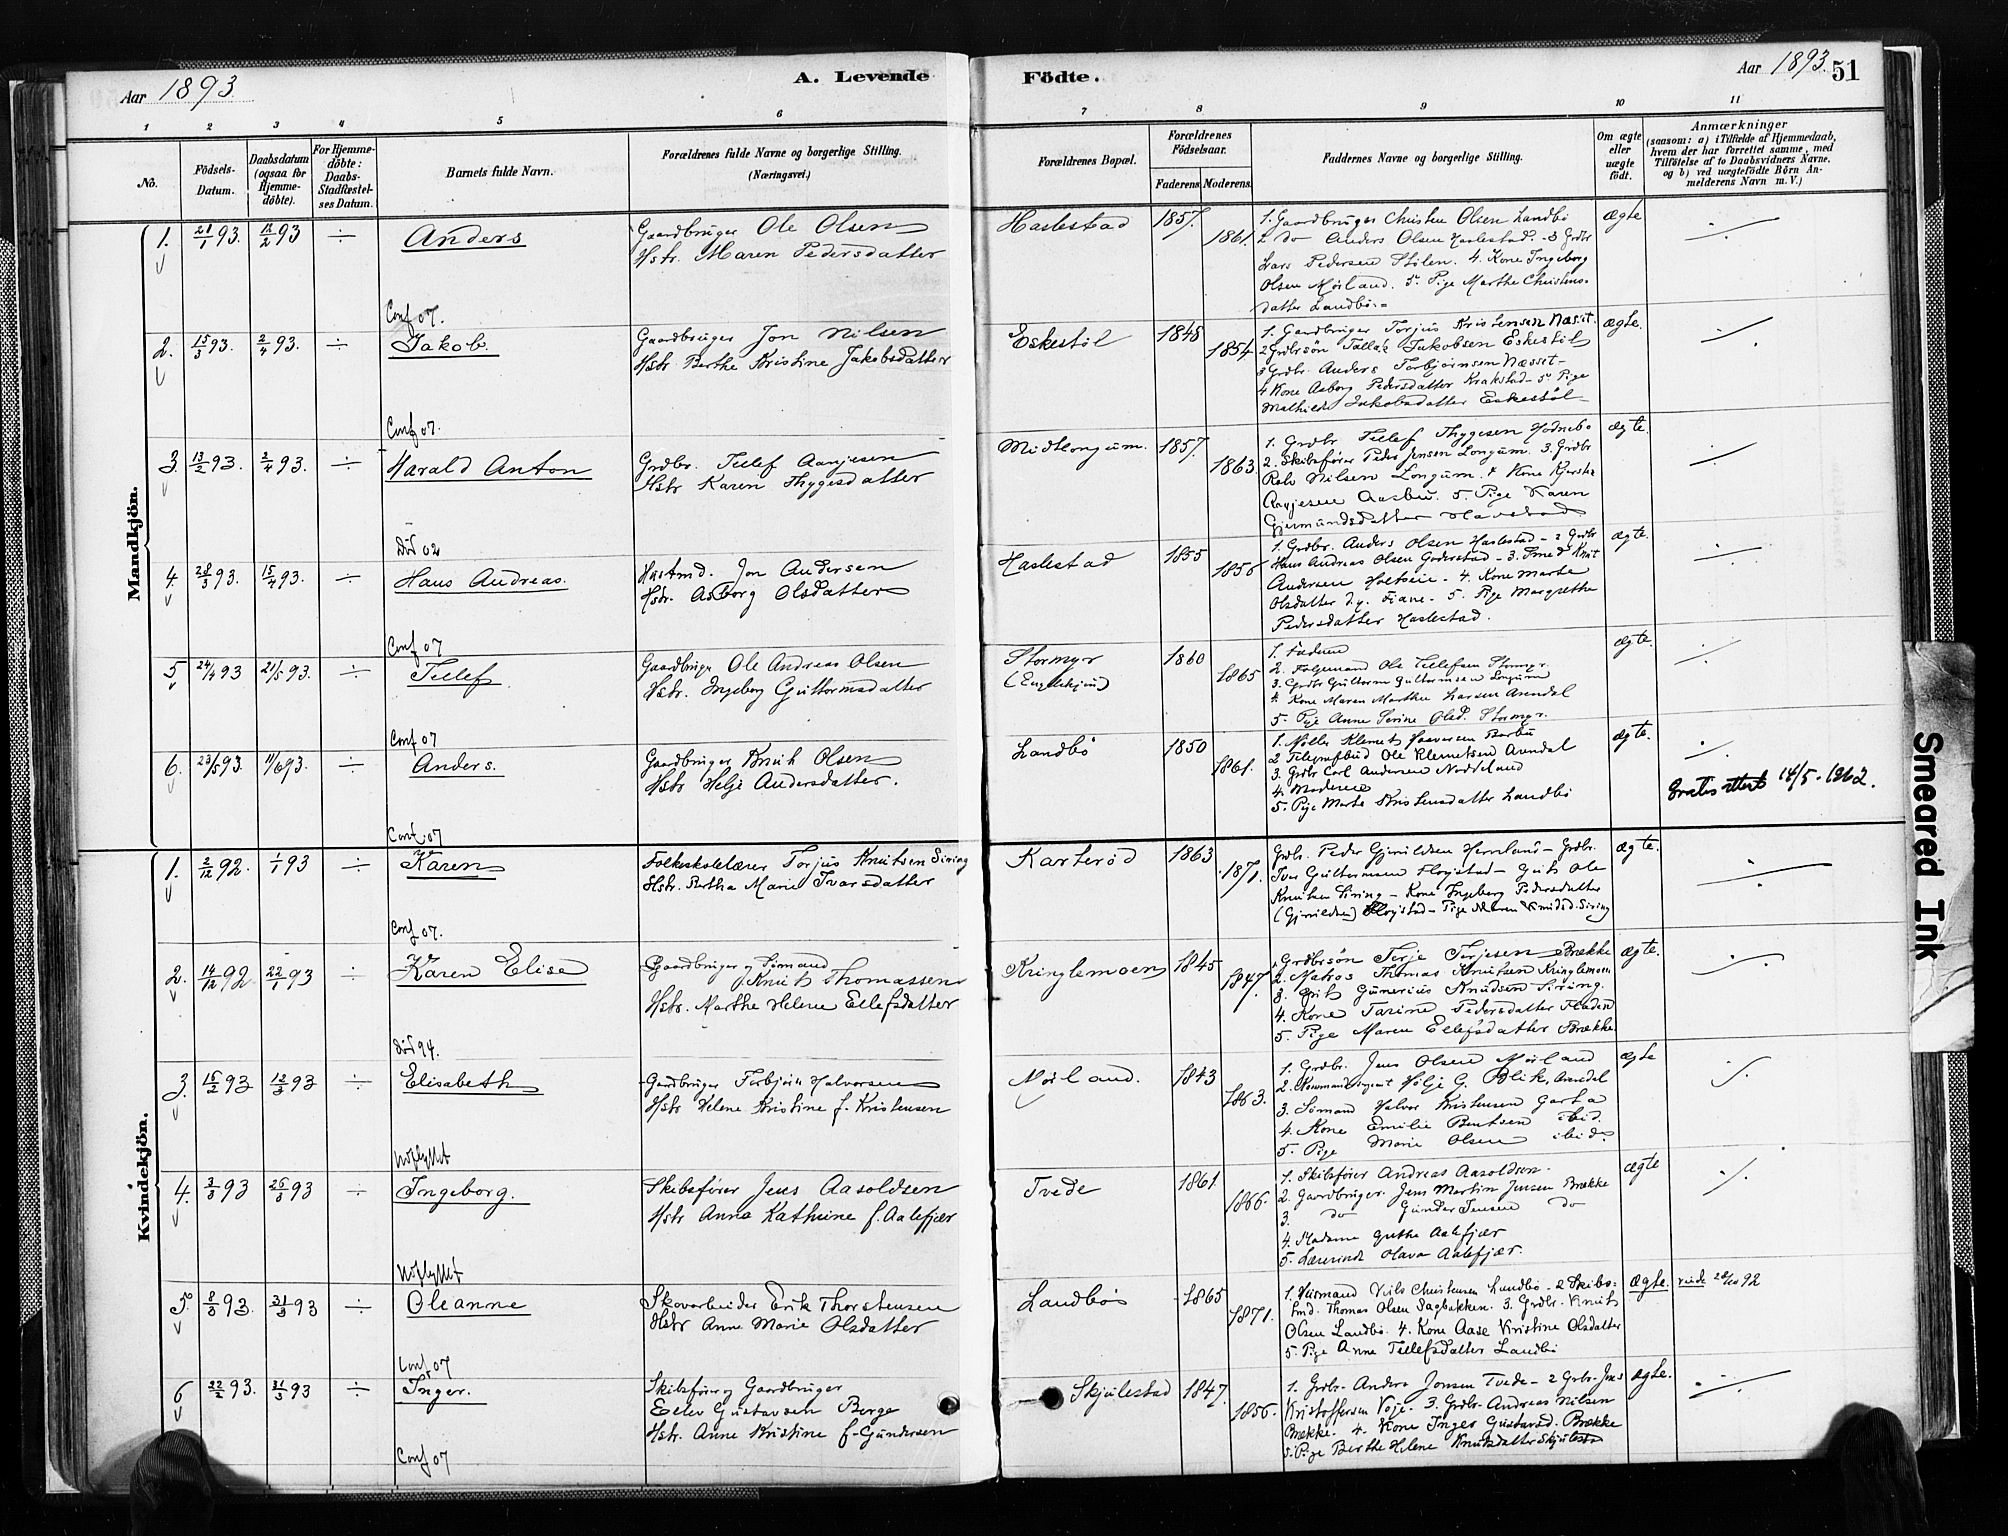 Aar 1893.
A. Levende
Födte.
Aar 1893.
51
1 2 3 4 5 6 7 8 9 10 11
No.
Födsels-
Datum.
Daabsdatum
(ogsaa for
Hjemme-
döbte).
For Hjemme-
döbte:
Daabs-
Stadfæstel-
ses Datum.
Barnets fulde Navn.
Forældrenes fulde Navne og borgerlige Stilling.
(Næringsvei.)
Forældrenes Bopæl.
Forældrenes
Födselsaar.
Faderens.
Moderens.
Faddernes Navne og borgerlige Stilling.
Om ægte
eller
uægte
födt.
Anmærkninger
(saasom: a) i Tilfælde af Hjemmedaab,
hvem der har forrettet samme, med
Tilföielse af to Daabsvidners Navne.
og b) ved uægtefödte Börn An-
melderens Navn m. V.)
Mandkjön.
1. 21/1 93. 12/2 93 ÷ Anders
Gaardbruger Ole Olsen
Hstr. Maren Pedersdatter
Haslestad 1857. 1861.
1. Gaardbruger Christen Olsen Landbö
2 do Anders Olsen Haslestad. - 3 Grdbr
Lars Pedersen Stölen. 4. Kone Ingeborg
Olsen Mörland. 5. Pige Marthe Christens-
datter Landbö.
ægte ÷
Conf 07.
2. 15/3 93. 2/4 93. ÷ Jakob.
Gaardbruger Jon Nilsen
Hstr. Berthe Kristine Jakobsdatter
Eskestöl 1848 1854
1. Gaardbruger Torjus Kristensen Næset.
2 Grdbrsön Tallak Jakobsen Eskestöl
3 Grdbr. Anders Torbjörnsen Næsset -
4 Kone Aaborg Pedersdatter Krakstad - 5. Pige
Mathilde Jakobsdatter Eskestöl
ægte. ÷
Conf 07.
3. 13/2 93. 2/4 93. ÷ Harald Anton
Grdbr. Tellef Aanjesen
Hstr Karen Thygesdatter
Midtlongum. 1857. 1863.
1. Grdbr Tellef Thygesen Hödnebö
2. Skibsförer Peder Jensen Longum. 3. Grdbr
Rolv Nilsen Longum. 4 Kone Kjerstie
Aanjesen Aasbu. 5. Pige Karen
Gjermundsdatter Havstad
ægte. ÷
Död 02
4. 28/3 93. 15/4 93. ÷ Hans Andreas.
Husmd. Jon Andersen
Hstr. Aaborg Olsdatter
Haslestad 1855 1856
1. Grdbr. Anders Olsen Haslestad - 2 Grdbr
Hans Andreas Olsen Goderstad - 3. Smed Knut
Andersen Holtseie. - 4. Kone Marte
Olsdatter d.y. Fiane. - 5. Pige Margrethe
Pedersdatter Haslestad.
ægte. ÷
Conf 07
5 24/4 93 21/5 93. ÷ Tellef
Gaardbruger Ole Andreas Olsen
Hstr. Ingeborg Guttormsdatter
Stormyr
1860 1865
1. Faderen
2. Folgemand Ole Tellefsen Stormyr.
3. Grdbr Guttorm Guttormsen Longum
4. Kone Maren Marthea Larsen Arendal
5. Pige Anne Serine Olsd. Stormyr.
ægte. ÷
Conf 07
6. 23/5 93. 11/6 93. ÷ Anders.
Gaardbruger Knut Olsen
Hstr Helje Andersdatter.
Landbö 1850 1861.
1. Möller Klemet Haavorsen Barbu
2 Telegrafbud Ole Klemetsen Arendal
3. Grdbr Carl Andersen Neddeland
4. Moderen
5. Pige Marte Kristensdatter Landbö
ægte. ÷
14/5 - 1962.
Conf. 07
Kvindekjön.
1. 2/12 92. 1/1 93 ÷ Karen
Folkeskolelærer Torjus Knutsen Siring
Hstr. Bertha Marie Ivarsdatter
Karteröd 1863 1871.
Grdbr. Peder Gjerulldsen Herrland - Grdbr.
Iver Guttormsen Flöistad - Gut Ole
Knutsen Siring - Kone Ingeborg Pedersdatter
Flöystad - Pige Maren Knudsd. Siring
ægte. ÷
Conf 07.
2. 14/12 92. 22/1 93 ÷ Karen Elise
Gaardbruger og Sömand
Knut Thomassen
Hstr. Marthe Helene Ellefsdatter
Kringlemoen 1845 1847.
1. Grdbrsön Terje Terjesen Brække
2. Matros Thomas Knutsen Kringlemoen
3. Gut Gunerius Knudsen Siring.
4. Kone Tarine Pedersdatter Fladen
5. Pige Maren Ellefsdatter Brække
ægte. ÷
Död 94.
3. 16/2 93 12/3 93 ÷ Elisabeth
Gardbruger Torbjörn Halvorsen
Hstr Helene Kristine f. Kristensen
Mörland. 1843 1863.
1. Grdbr. Jens Olsen Mörland
2. Hölje G. Blik, Arendal
3. Sömand Halvor Kristensen Garta
4. Kone Emilie Bentsen ibid.
5. Pige Marie Olsen ibid.
ægte ÷
Udflyttet
4. 3/3 93 26/3 93 ÷ Ingeborg.
Skibsförer Jens Aasoldsen
Hstr Anna Kathrine f. Aalefjær
Tvede 1861 1866.
1. Skibsförer Andreas Aasoldsen.
2. Gaardbruger. Jens Martin Jensen Brække
3. do Gunder Jensen do
4. Madame Grethe Aalefjær
5. Lærerinde Olava Aalefjær.
ægte ÷
Udflyttet
5. 8/3 93. 31/3 93 ÷ Oleanne
Skovarbeider Erik Thorstensen
Hstr Anne Marie Olsdatter
Landbö 1865 1871.
1. Nils Christensen Landbö - 2 Skibs-
tmd. Thomas Olsen Sagbakken. 3. Grdbr. Knut
Olsen Landbö. 4. Kone Aase Kristine Olsdatter
5. Pige Anne Tellefsdatter Landbö
ægte. viede 28/10 92
Conf 07
6 22/2 93. 31/3 93 ÷ Inger.
Skibsförer og Gaardbruger
Eilev Gustavsen Berge
Hstr. Anne Kristine f. Gundersen
Skjulestad 1847. 1856.
1. Grdbr. Anders Jonsen Tvede - 2 Grbr. Jens
Kristoffersen Voje. 3. Grdbr Andreas Nilsen
Brække. 4. Kone Inger Gustavsd. Brække
5. Pige Berthe Helene Knutsdatter Skjulestad
ægte. ÷
Conf 07
Smeared Ink